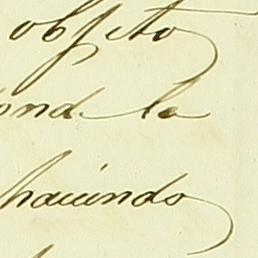 objeto
ond la
haciendo